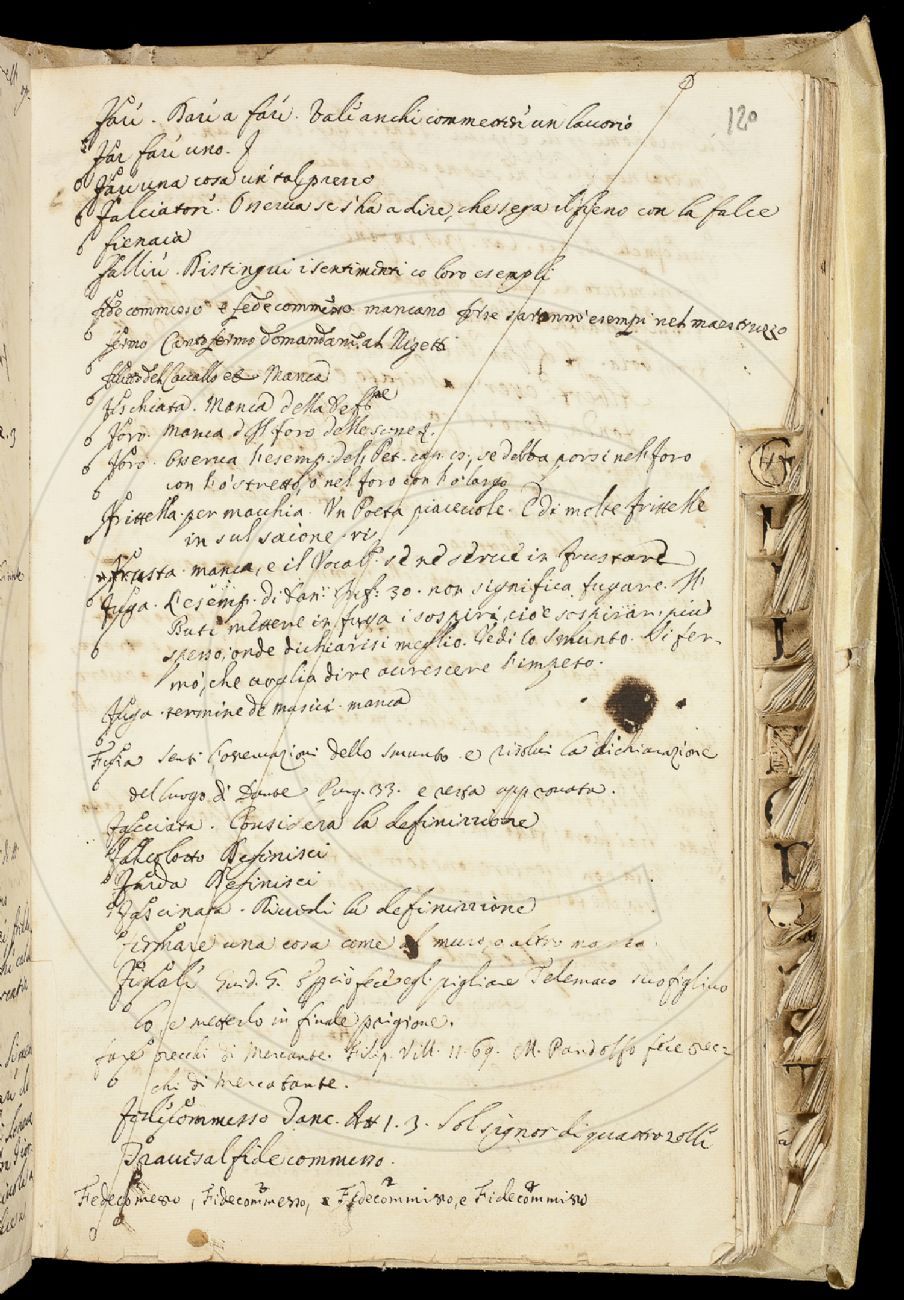 120
Fare. Dare a fare. Vale anche commettere un lavorio
Far fare uno.
Fare una cosa un tal prezzo
Falciatore. Osserva se s'ha a dire, che sega il fieno con la falce
fienaia
Fallire. Distingui i sentimenti co loro esempli
fidecommesso e fedecommesso mancano forse saranno esempi nel maestruzzo
fermo Canto fermo domandarne al Nigetti
del Cavallo et Manca
Fischiata. Manca della
Foro. Manca
Foro. Osserva l'esemp. del Pet. se debba porsi nel foro
con l'o stretto, o nel foro con l'o largo
Frittella per macchia. Un Poeta piacevole. E di molte frittelle
in sul saione
Frusta. manca, e il Vocab. se ne serve in frustare
Fuga. L'esemp. di Dan. Inf. 30. non significa fugare. Il
Buti mettere in fuga i sospiri, cioè sospirar più
spesso, onde dichiarisi meglio. Vedi lo Smunto. Si fer-
mò, che voglia dire accrescere l'impeto.
Fuga. termine de musici. manca
Fuia dello smunto e risolvi la dichiarazione
del luogo di Dante Purg. 33. e resta approvata.
Facciata. Considera la definizione
Definisci
Falda Definisci
Fascinata. Rivedi la definizione
fermare una cosa come al muro, o altro manca.
Finale Guid. G. fece egli pigliare Telemaco suo figliuo
lo, e metterlo in finale prigione.
fare orecchi di Mercante. Filip. Vill. 11. 69. M. Pandolfo fece orec-
chi di Mercatante.
Fidecommesso Att. 1. 3. Sol signor di quattro zolle
al fidecommesso.
Fedecomesso, Fidecommesso, Fedecommisso, e Fidecommisso
3 2 4
H
I
L
N
O
P
Q
S
T